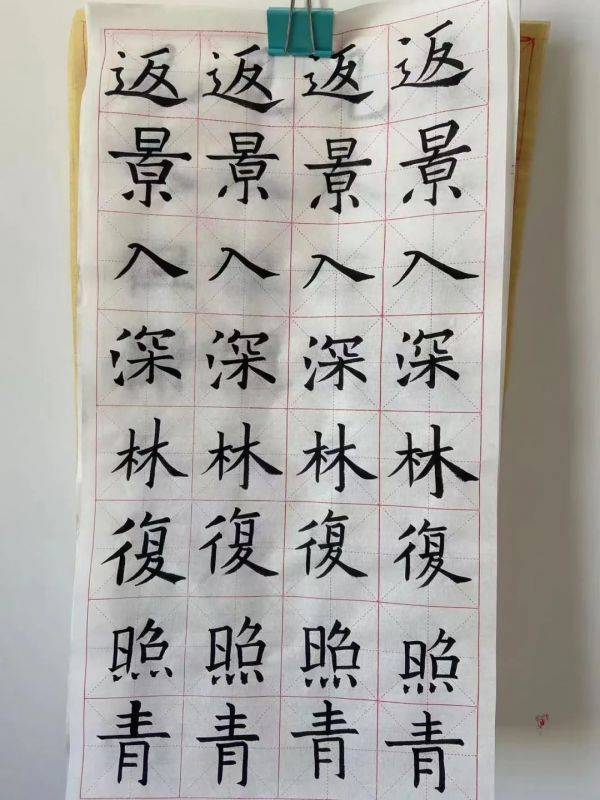 返景入深林復照青
返景入深林復照青
返景入深林復照青
返景入深林復照青